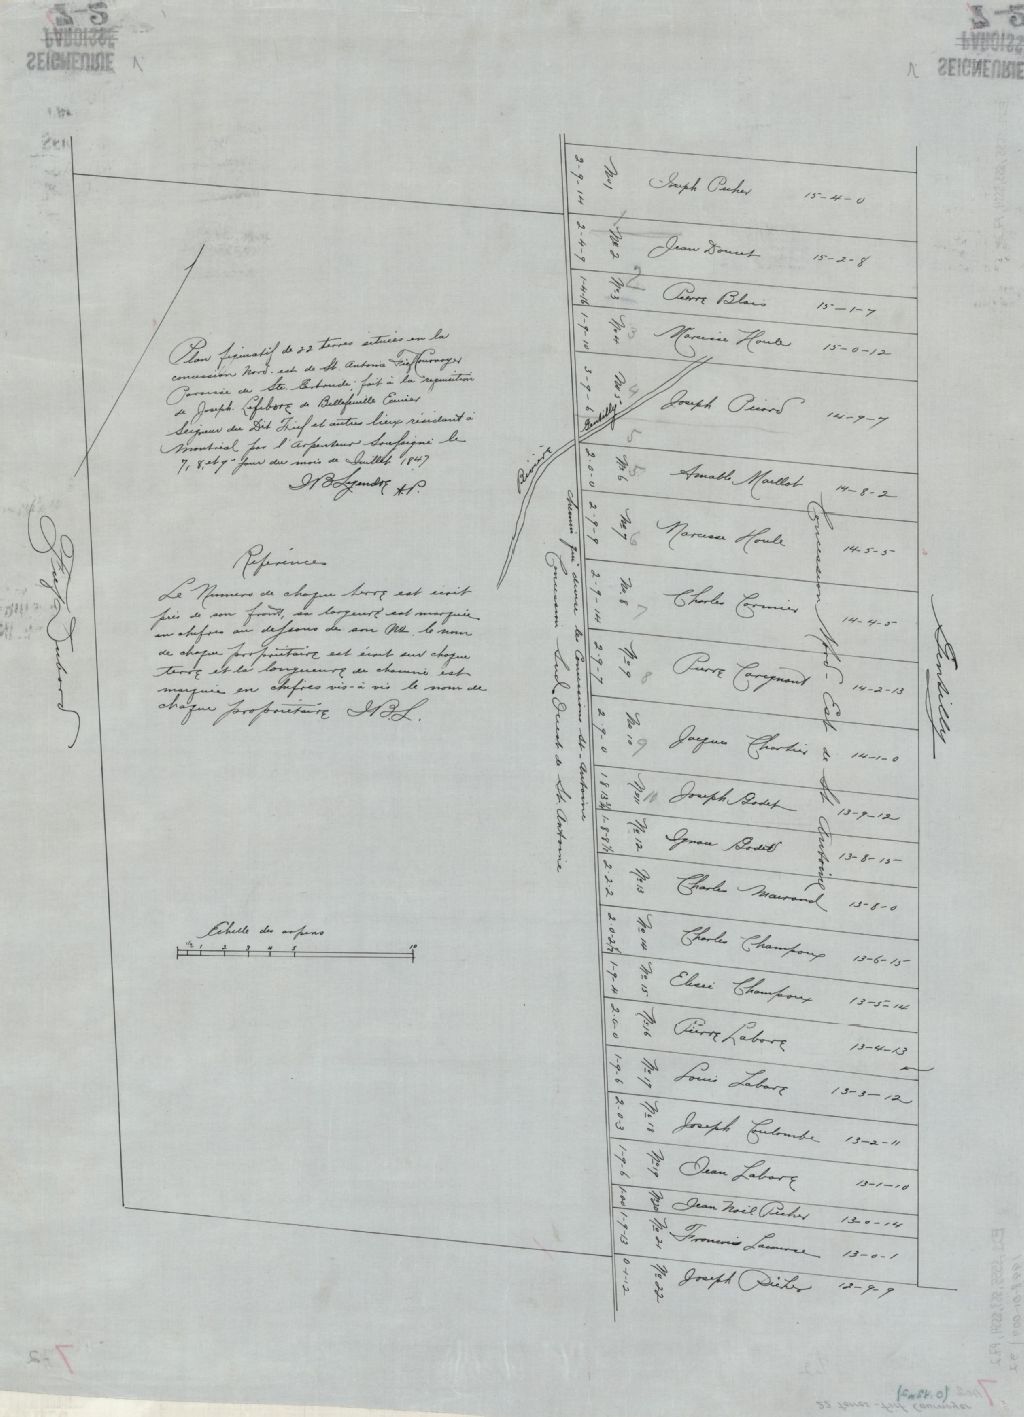 Plan figuratif de 22 terres situées en la
concession Nord-est de St Antoine Fief Cournoyer
Paroisse de Ste. Gertrude, fait à la requisition
de Joseph Lefebvre de Bellefeuille Ecuier
Seigneur du Dit Fief et autres lieux résidant à
Montréal par l'Arpenteur Soussigné le
7, 8, et 9e jour du mois de Juillet 1847
JB Legendre A.P.
Réferénces
Le Numero de chaque terre est écrit
près de son front, sa largeure est marquée
en chifres au dessous de son No. le nom
de chaque propriétaire est écrit sur chaque
terre et la longueure de chacune est
marquée en chifres vis-à vis le nom de
chaque propriétaire JBL.
Echelle des arpens
1/2 1 2 3 4 5 10
Fief Dubord
Rivière
Gentilly
chemin qui divise les Concessions St-Antoine
Concession Sud-Ouest de St. Antoine
Concession Nord-Est de St Antoine
Gentilly
2-9-14 No 1 Joseph Picher 15-4-0
2-4-9 No 2 Jean Doucet 15-2-8
No 3 Pierre Blais 15-1-7
1-9-10 No 4 Narcisse Houle 15-0-12
3-9-6 No 5 Joseph Picard 14-9-7
2-0-0 No 6 Amable Maillot 14-8-2
2-9-9 No 7 Narcisse Houle 14-5-5
2-9-14 No 8 Charles Cormier 14-4-5
2-9-7 No 9 Pierre Carignant 14-2-13
2-9-0 No 10 Jacques Chartier 14-1-0
No 11 Joseph Bodet 13-9-12
No 12 Ignace Bodet 13-8-15
2-2-2 No 13 Charles 13-8-0
No 14 Charles Champoux 13-6-15
1-9-14 No 15 Eliseé Champoux 13-5-14
2-0-0 No 16 Pierre Labare 13-4-13
1-9-6 No 17 Louis Labare 13-3-12
2-0-3 No 18 Joseph Coulombe 13-2-11
1-9-6 No 19 Jean Labare 13-1-10
No 20 Jean Noël Picher 13-0-14
1-9-13 No 21 Francois 13-0-1
0-1-12 No 22 Joseph Picher 12-9-9
PAROISSE
SEIGNEURIE
PAROISSE
SEIGNEURIE